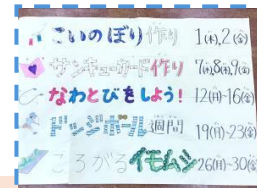 こいのぼり作り 1(木),2(金)
サンキューカード作り 7(水),8(木),9(金)
なわとびをしよう! 12(月)-16(金)
ドッジボール週間 19(月)-23(金)
ころがるイモムシ 26(月)-30(金)